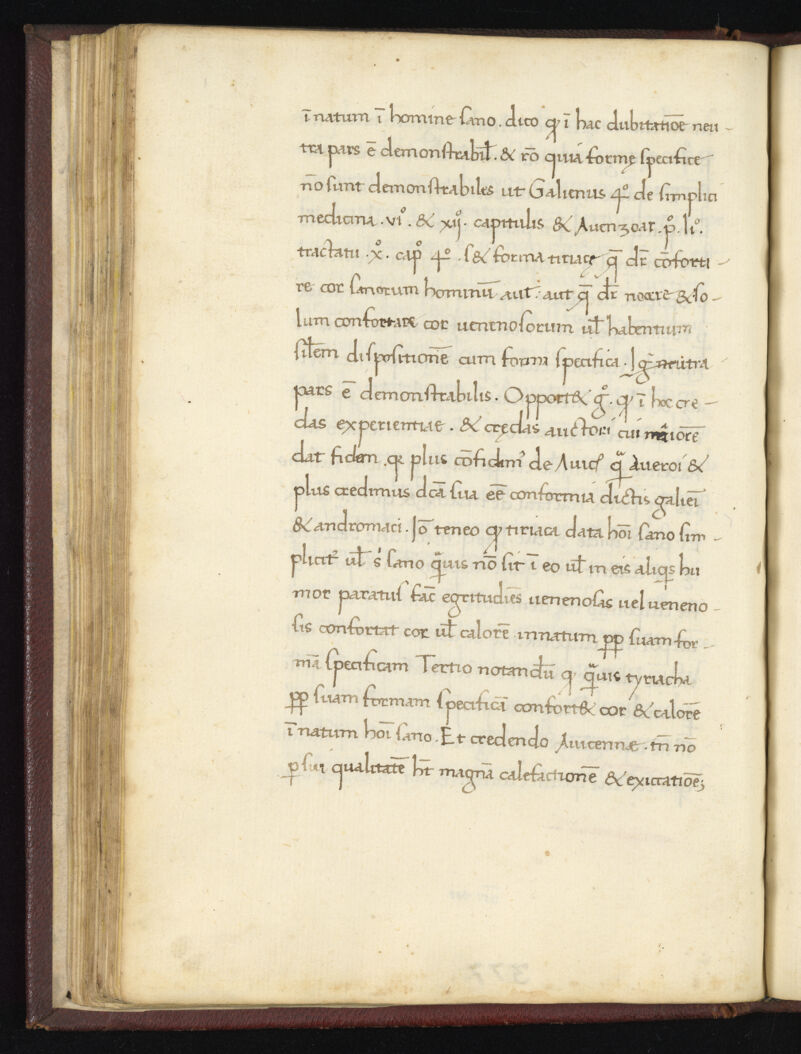 ī natum ī homine sano. dico qͥ ī hac dubitatiōe neu-
tra pars ē demonstrabil̄. & rō quia formę specifice
nō sunt demonstrabiles ut Galienus 4º de simplici
medicina .viº. & xijº. capitulis & Auenzoar .pº. liº.
tractatu .xº. capº 4º. s& forma tiriacę q̄ dr̄ cōforta-
re cor sanorum hominū aut: aut q̄ dr̄ nocere & so-
lum confortare cor uenenosorum ul̄ habentium
sil̄em dispositionē cum forma specifica. Igͥ neutra
pars ē demonstrabilis. Opport& gº. qͥ ī hoc cre-
das experientiae. & crędas auctori cui maiorē
dat fidem. qͥ plus cōfidimꝰ de Auicͤ q̄ Aueroi &
plus credimus dc̄a sua eē conformia dictis galieni
& andromaci. Iō teneo qͥ tiriaca data hōi sano sim-
plicitͥ ul̄ sͥ sano q̄uis nō sit ī eo ul̄ in eis aliqͥs hu
mor paratus fac̄ egritudīes uenenosas uel ueneno-
sis confortat cor ul̄ calorē innatum ꝓꝑ suam for-
mā specificam Tertio notandū qͥ q̄uis tyriacha
ꝓꝑ suam formam specificā confort& cor & calorē
ī natum hōi sano. Et credendo Auicennae. tn̄ nō
ꝑ sui qualitatē ht̄ magnā calefactionē & exiccatiōē;